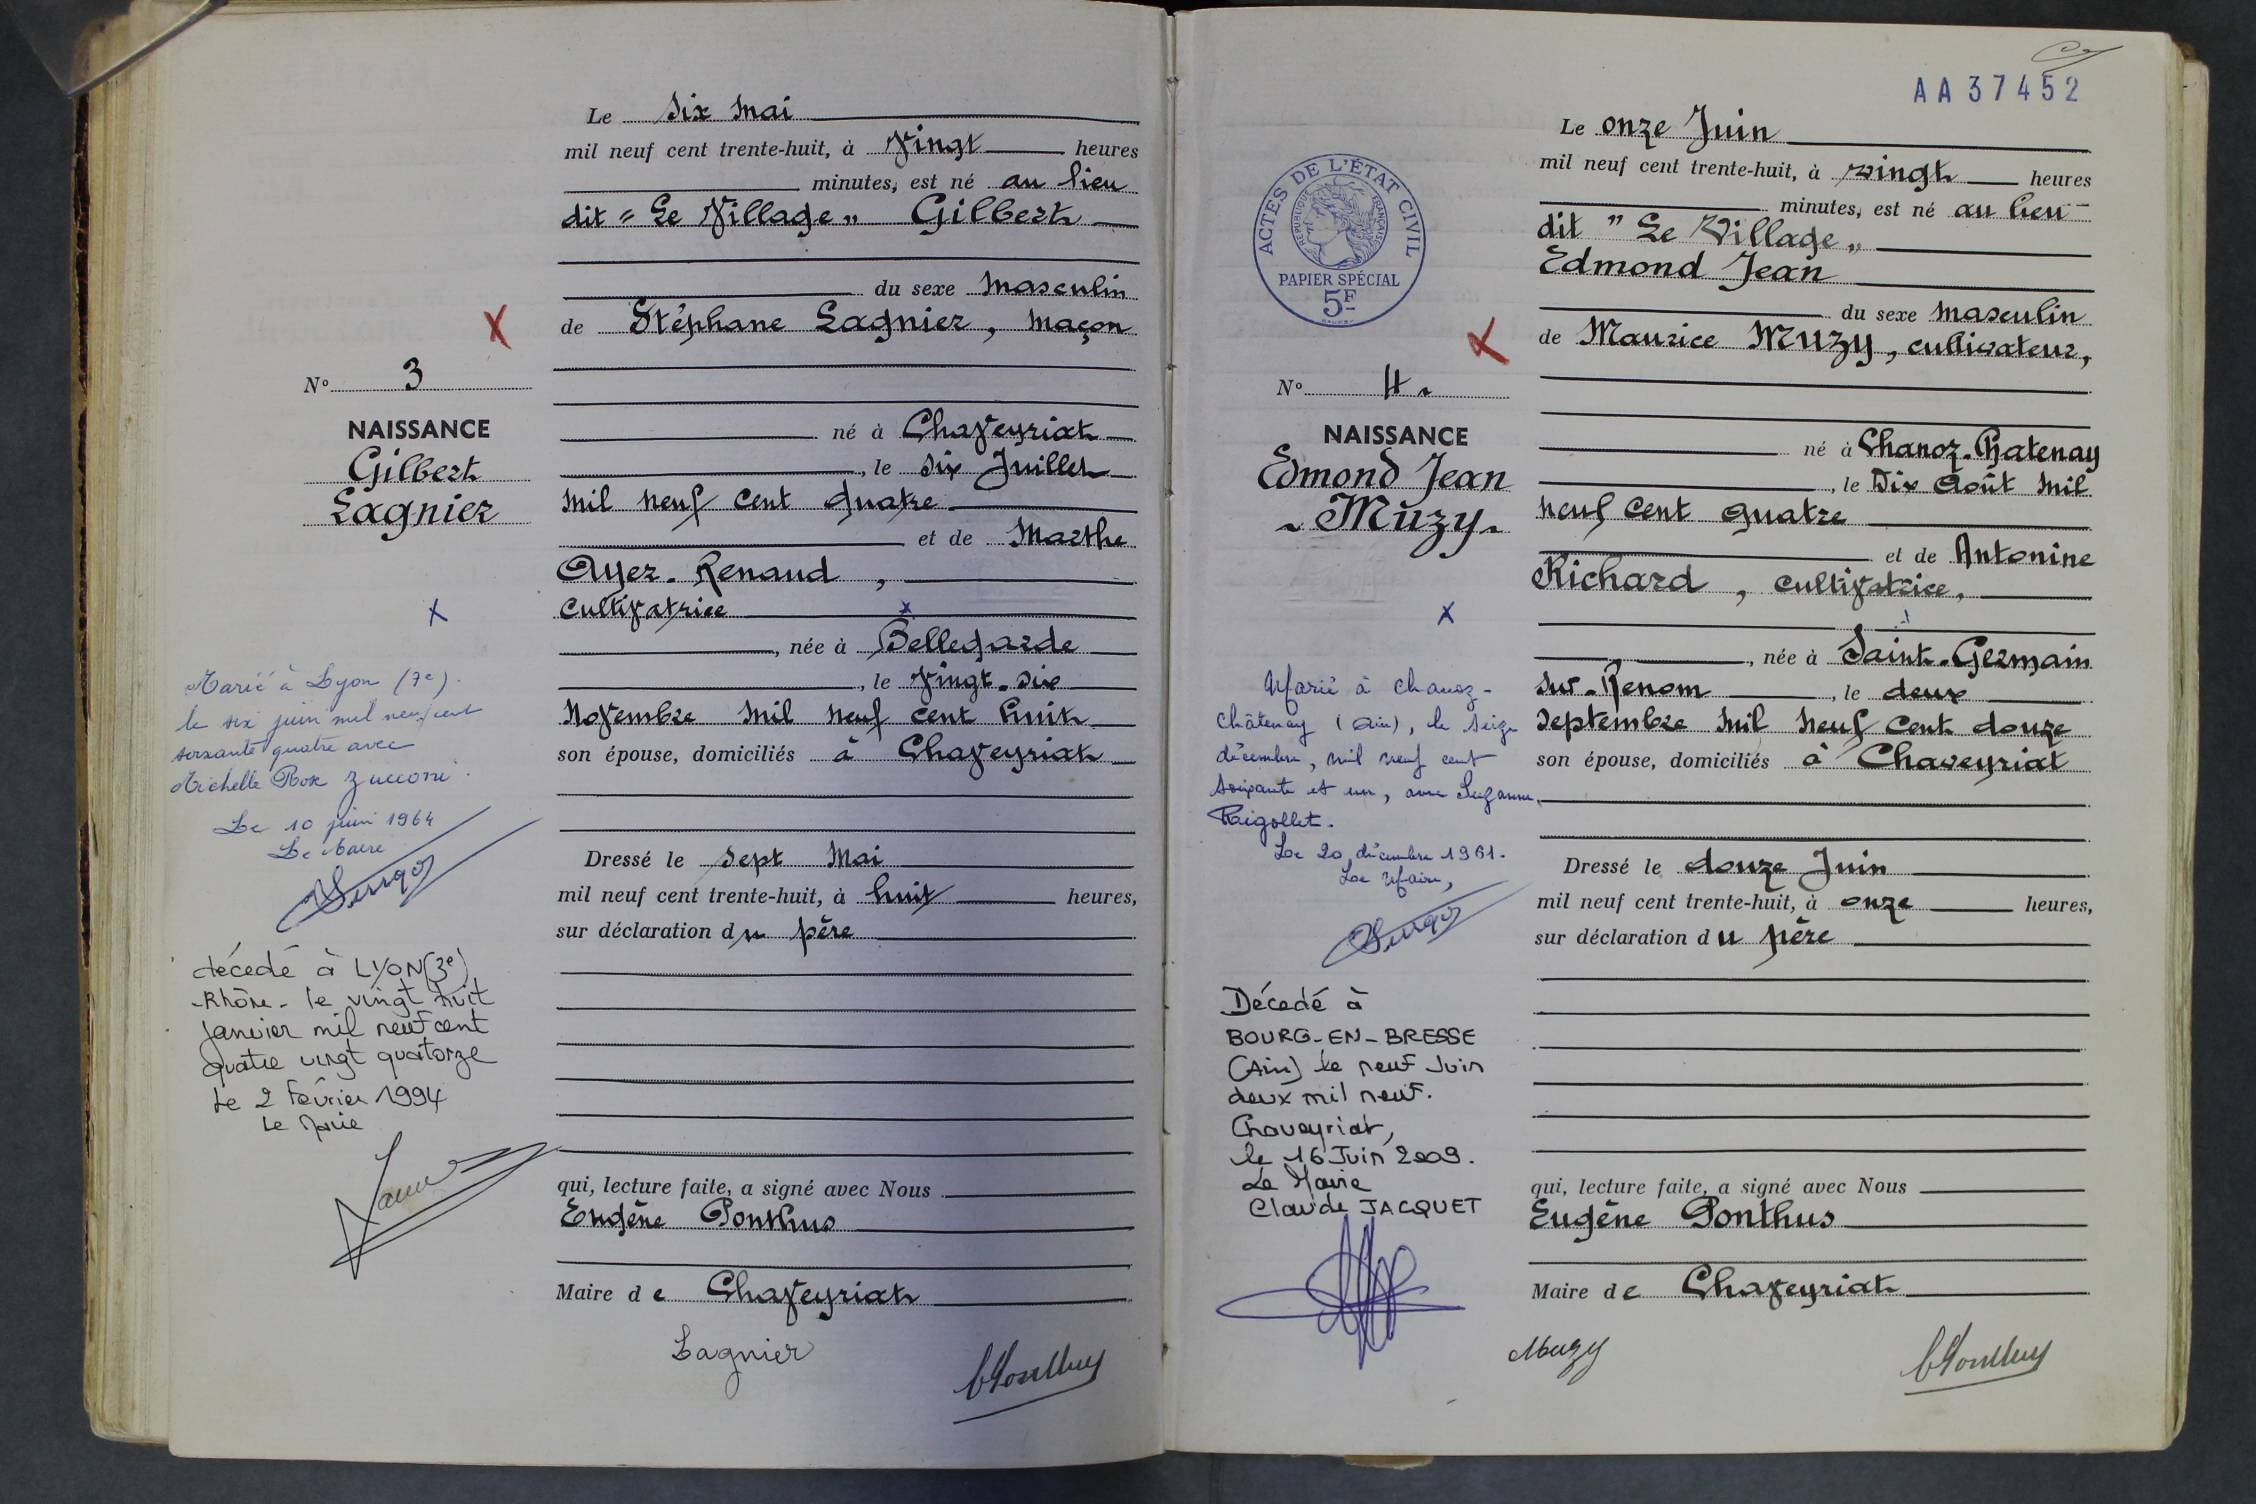 Le six Mai
mil neuf cent trente-huit, à Vingt heures
minutes, est né au lieu
dit "Le Village" Gilbert
du sexe Masculin
X
de Stéphane Lagnier, Maçon
Nº 3
NAISSANCE
Gilbert
Lagnier
né à Chaveyriat
, le six Juillet
Mil neuf cent quatre
et de Marthe
Ayer-Renaud,
x
Cultivatrice
x
, née à Bellegarde
, le Vingt-six
Novembre Mil neuf cent huit
son épouse, domiciliés à Chaveyriat
Marié à Lyon (7e).
le six juin mil neuf cent
soixante quatre avec
Michelle Rose Zucconi.
Le 10 juin 1964
Le Maire
Dressé le sept Mai
mil neuf cent trente-huit, à huit heures,
sur déclaration du père
décedé à LYON (3e)
-Rhône- le vingt huit
Janvier mil neuf cent
quatre vingt quatorze
Le 2 Février 1994
Le Maire
qui, lecture faite, a signé avec Nous
Eugène Ponthus
Maire de Chaveyriat
Lagnier
AA 37452
Le onze Juin
mil neuf cent trente-huit, à vingt heures
minutes, est né au lieu
dit "Le Village"
Edmond Jean
du sexe Masculin
de Maurice MUZY, cultivateur,
ACTES DE L'ÉTAT CIVIL
RÉPUBLIQUE FRANÇAISE
PAPIER SPÉCIAL
5F
X
Nº 4
NAISSANCE
Edmond Jean
Muzy
né à Chanoz-Chatenay
, le Dix Août Mil
neuf cent quatre
et de Antonine
Richard, cultivatrice,
x
, née à Saint-Germain
sur-Renom, le deux
Septembre Mil neuf cent douze
son épouse, domiciliés à Chaveyriat
Marié à Chanoz-
Châtenay (Ain), le seize
décembre, mil neuf cent
soixante et un, avec Suzanne
Raigollet.
Le 20 décembre 1961.
Le Maire,
Dressé le douze Juin
mil neuf cent trente-huit, à onze heures,
sur déclaration du père
Décedé à
BOURG-EN-BRESSE
(Ain) le neuf Juin
deux mil neuf.
Chaveyriat,
le 16 Juin 2009.
Le Maire
Claude JACQUET
qui, lecture faite, a signé avec Nous
Eugène Ponthus
Maire de Chaveyriat
Muzy